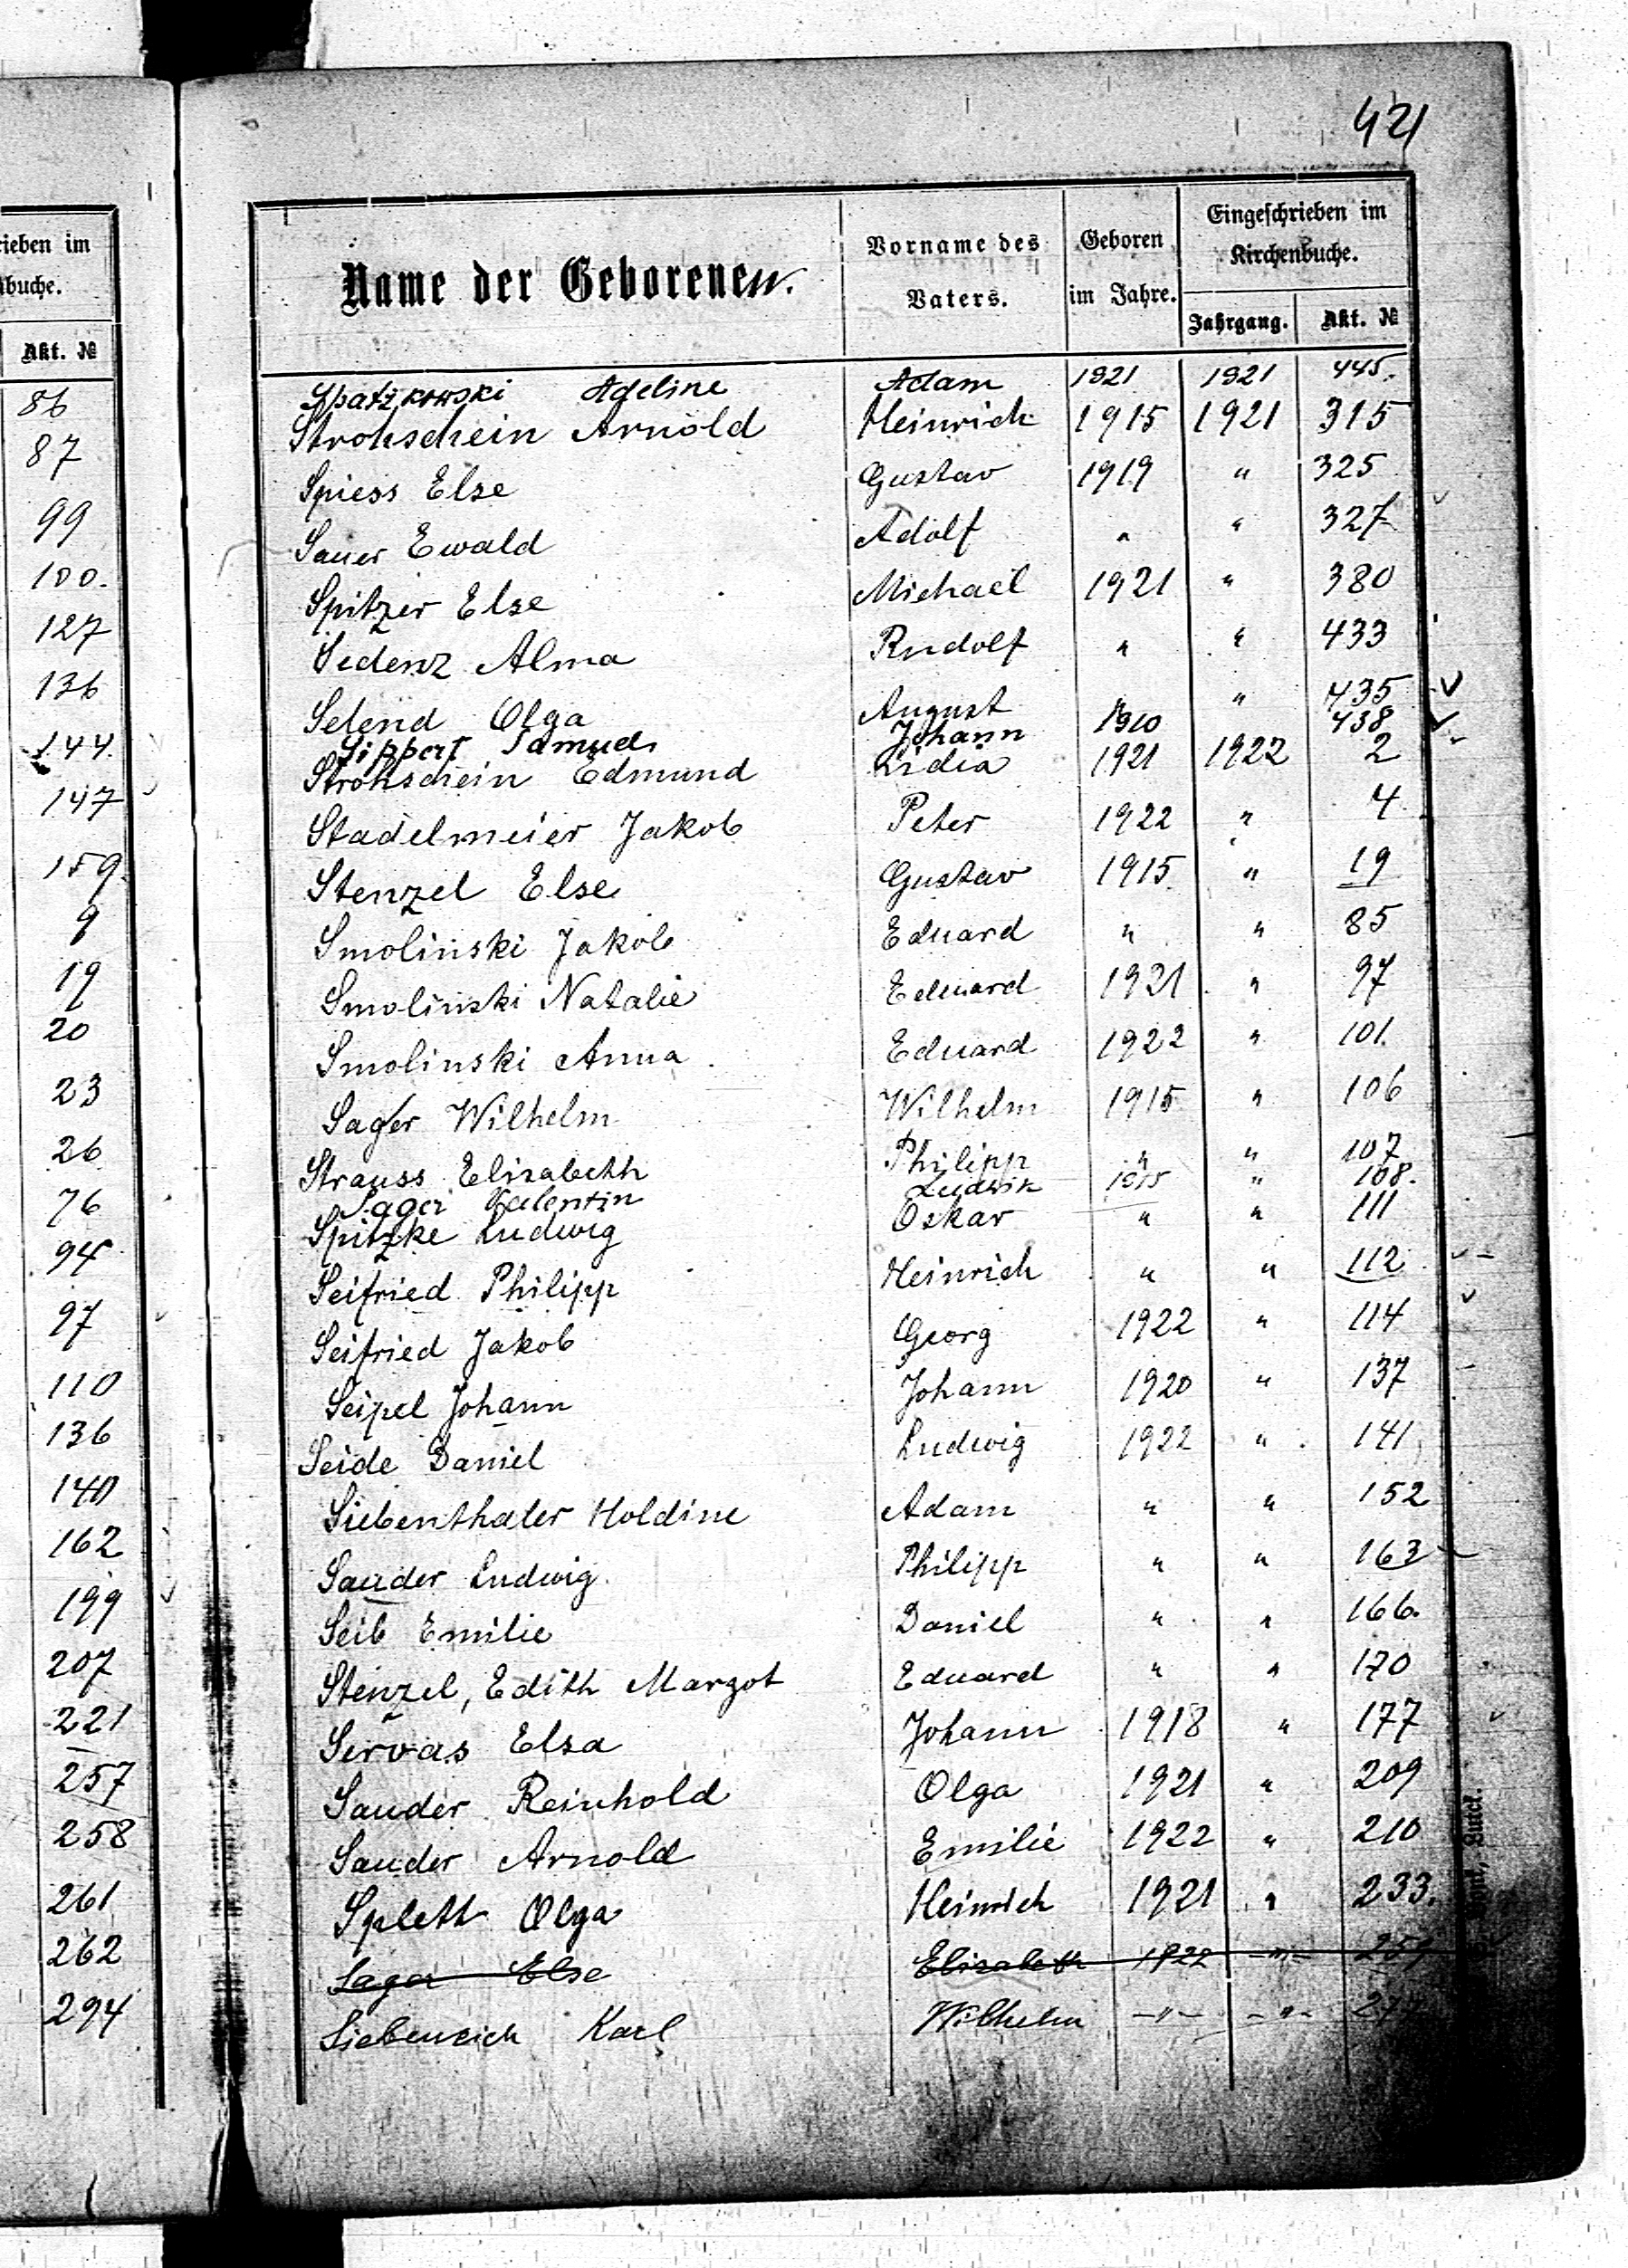 421
rieben im
nbuche.
Akt. №
86
87
99
100.
127
136
144.
147
159.
9
19
20
23
26
76
94
97
110
136
140
162
199
207
221
257
258
261
262
294
Name der Geborenen.
Vorname des Vaters.
Geboren im Jahre.
Eingeschrieben im Kirchenbuche.
Jahrgang. Akt. №
Spatzkowski Adeline Adam 1921 1921 445.
Strohschein Arnold Heinrich 1915 1921 315
Spiess Else Gustav 1919 " 325
Sauer Ewald Adolf " " 327
Spitzer Else Michael 1921 " 380
Sedenz Alma Rudolf " " 433
Selend Olga August " " 435
Sippert Johann 1910 438
Strohschein Edmund Lidia 1921 1922 2
Stadelmeier Jakob Peter 1922 " 4
Stenzel Else Gustav 1915 " 19
Smolinski Jakob Eduard " " 85
Smolinski Natalie Eduard 1921 " 97
Smolinski Anna Eduard 1922 " 101.
Sager Wilhelm Wilhelm 1915 " 106
Strauss Elisabeth Philipp " " 107
Sager Valentin Ludwik 1915 " 108.
Spitzke Ludwig Oskar " " 111
Seifried Philipp Heinrich " " 112
Seifried Jakob Georg 1922 " 114
Seipel Johann Johann 1920 " 137
Seide Daniel Ludwig 1922 " 141
Siebenthaler Holdine Adam " " 152
Sauder Ludwig Philipp " " 163
Seib Emilie Daniel " " 166.
Stenzel, Edith Margot Eduard " " 170
Servas Elsa Johann 1918 " 177
Sauder Reinhold Olga 1921 " 209
Sauder Arnold Emilie 1922 " 210
Splett Olga Heinrich 1921 " 233.
Sager Else Elisabeth 1922 -"- 259
Siebeneich Karl Wilhelm -"- -"-